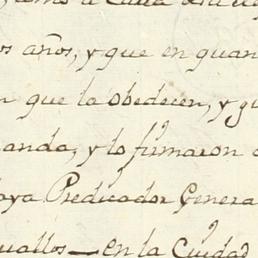 como a
os años, y que en quan
n que la obedecen, y
anda, y lo firmaron
aya Predicador Genera
uallos — en la Ciudad